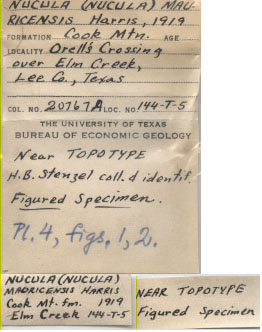 NUCULA (NUCULA) MAU-
RICENSIS Harris, 1919
FORMATION Cook Mtn. AGE
LOCALITY Orell's Crossing
over Elm Creek,
Lee Co., Texas
COL. NO. 20767A LOC. NO. 144-T-5
THE UNIVERSITY OF TEXAS
BUREAU OF ECONOMIC GEOLOGY
Near TOPOTYPE
H.B. Stenzel coll. & identif.
Figured Specimen.
Pl. 4, figs. 1, 2.
NUCULA (NUCULA)
MAURICENSIS HARRIS
Cook Mt. fm. 1919
Elm Creek 144-T-5
NEAR TOPOTYPE
Figured Specimen